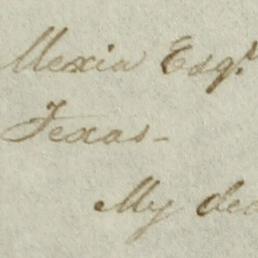 Mexia Esqr.
Texas-
My dea